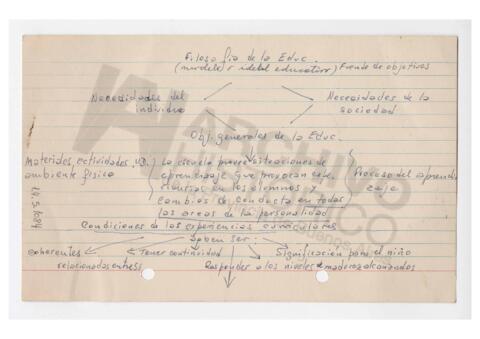 Filosofía de la Educ.
(modelo o ideal educativo) Fuente de objetivos
Necesidades del individuo
Necesidades de la sociedad
Obj. generales de la Educ.
Materiales, actividades,
ambiente físico
La escuela provee situaciones de
aprendizaje que provocan
en los alumnos y
cambios de conducta en todas
las areas de la personalidad
Proceso del aprendizaje
Condiciones de las experiencias curriculares
Deben ser:
coherentes
relacionados entre sí
Tener continuidad
Significación para el niño
Responder a los niveles de madurez alcanzados
ARCHIVO